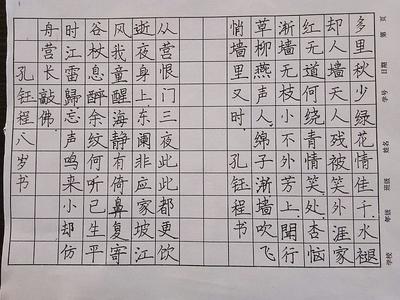 多里秋少绿花情佳千水褪
却人墙天人残被笑外涯家
红无道何绕青情笑处杏恼
渐墙无枝人小外芳上闻行
草柳燕声人绵子渐墙吹飞
悄墙里又时孔钰程书
从营恨门三夜此此都更饮
逝夜身上东阑非应家坡江
风我童醒海静有倚鼻复寄
谷杖息醉余纹何听已生平
时江雷歸忘声鸣来小却仿
舟营长敲佛
孔钰程八岁书
第 页
日期
学号
姓名
班级
年级
学校